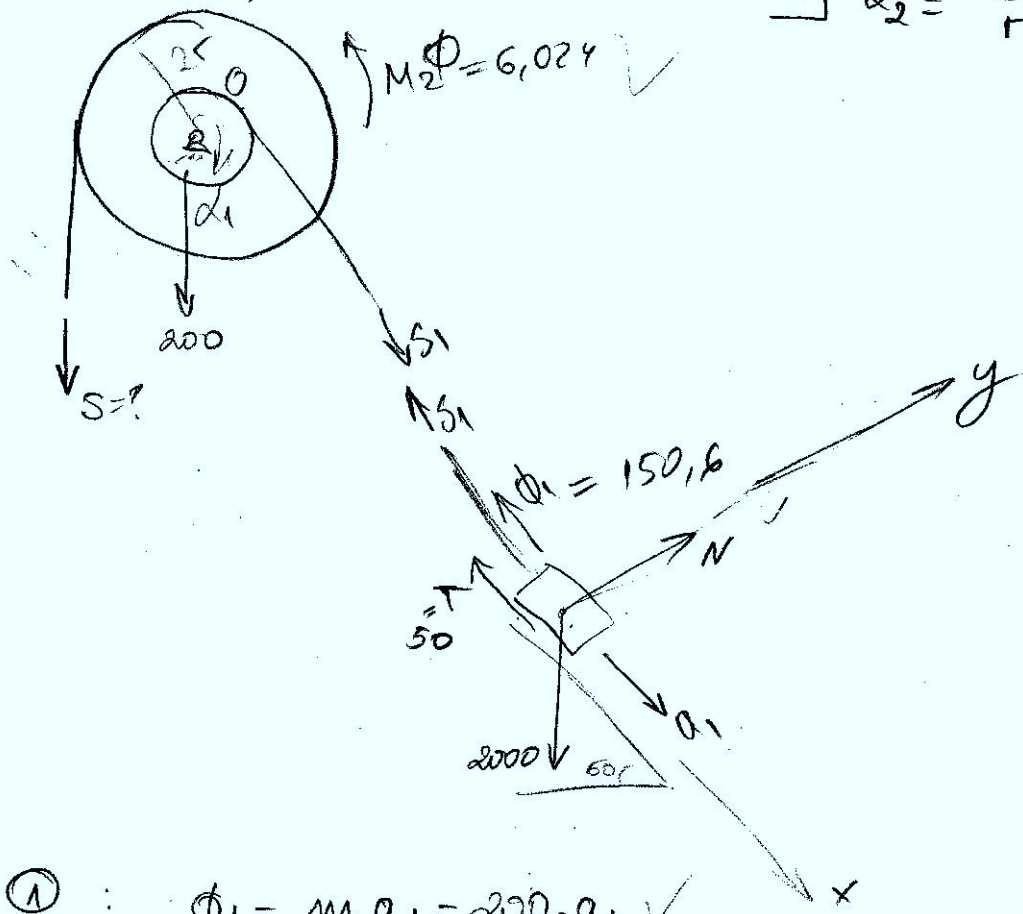 α₂ =
2r
O
M₂ᶲ = 6,024 ✓
α₁
200
S=?
S₁
S₁
y
ϕ₁ = 150,6
✓
N
T=
50
a₁
2000
60°
x
① : ϕ₁ = m a₁ = 200·a₁ ✓